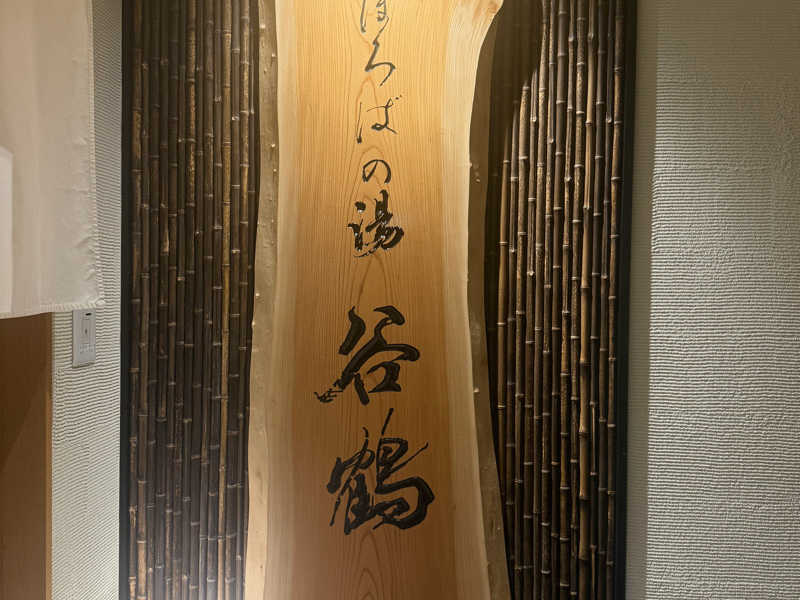 ほろばの湯
谷鶴